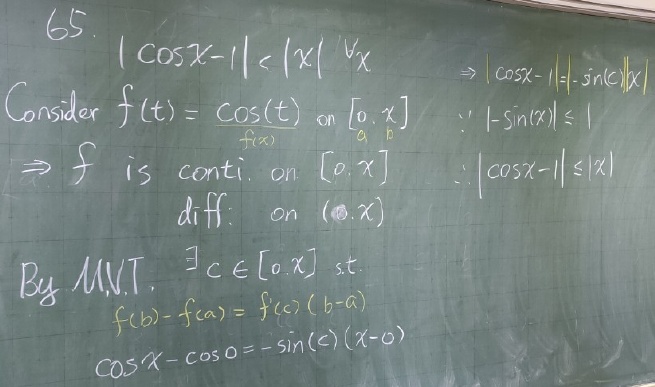 65.
|cosx-1| < |x| ∀x
Consider f(t) = cos(t) on [0, x]
f(x) a b
⇒ f is conti. on [0, x]
diff. on (0, x)
By M.V.T. ∃c ∈ [0, x] s.t.
f(b) - f(a) = f'(c)(b-a)
cosx - cos0 = -sin(c)(x-0)
⇒ |cosx-1| = |-sin(c)||x|
∵ |-sin(x)| ≤ 1
∴ |cosx-1| ≤ |x|